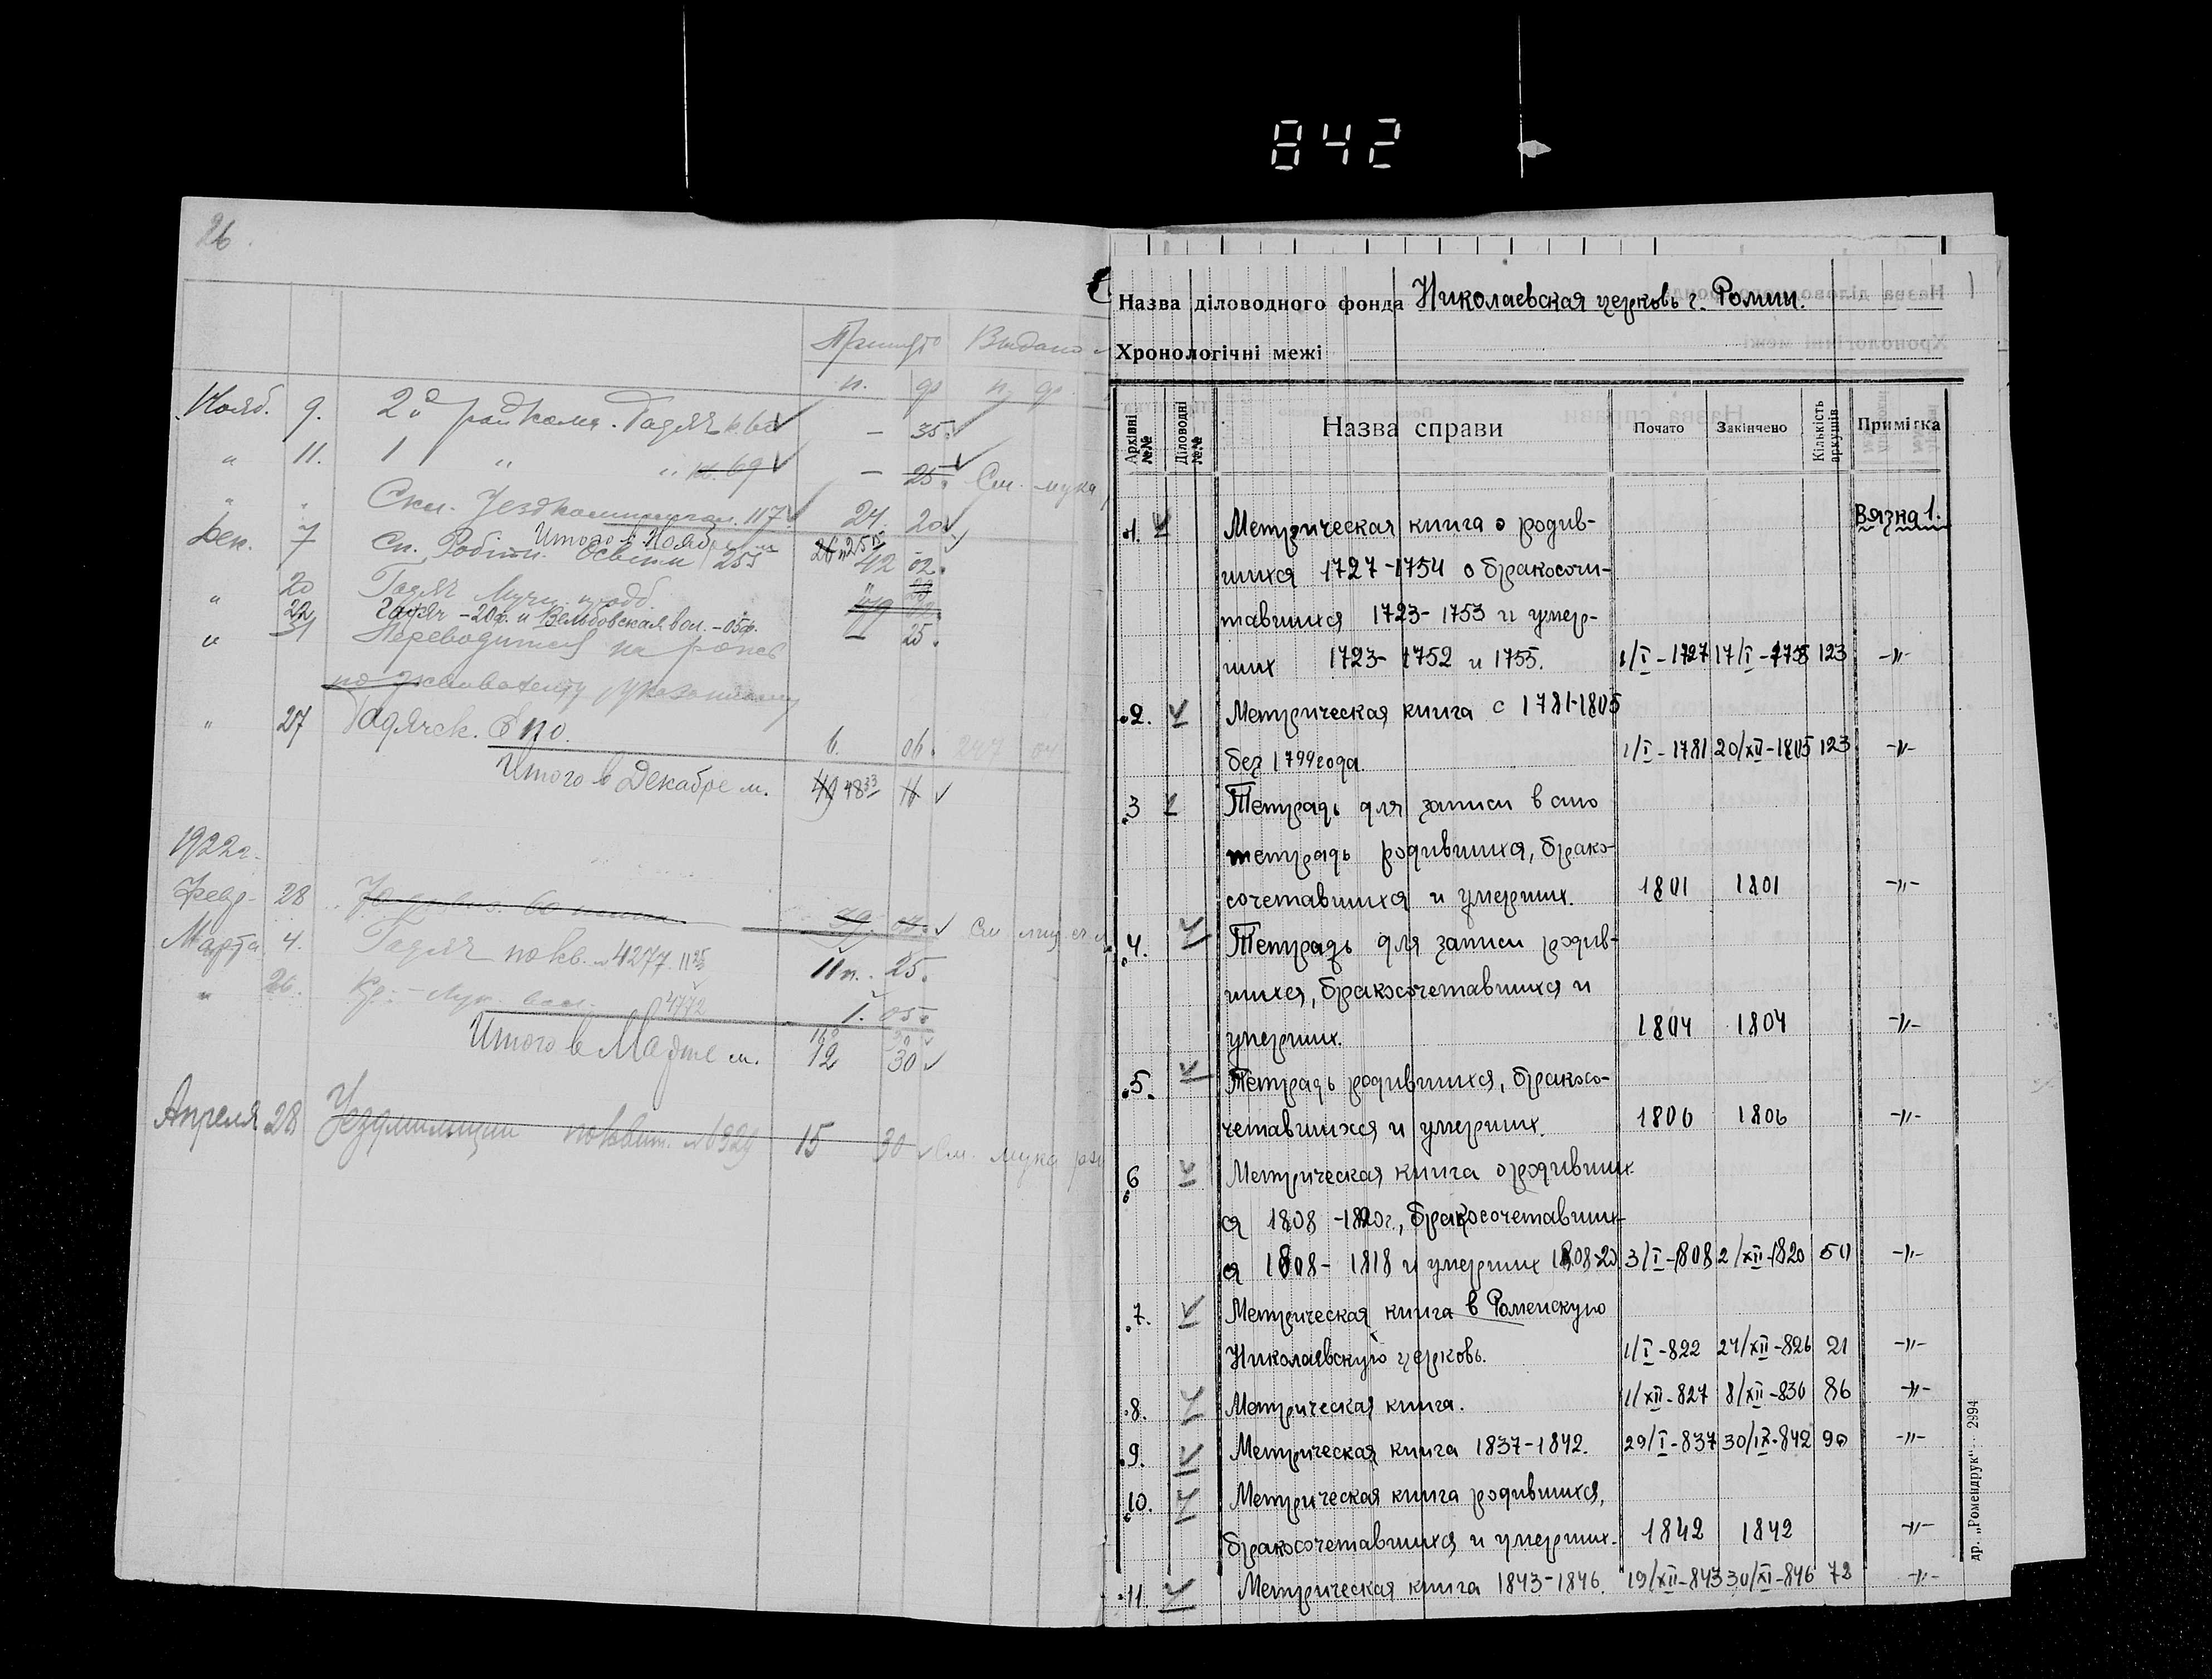 842
26.
Принято Выдано
п. ф. п. ф.
Нояб. 9. 2й райкома. Гадяч — 35.
" 11. 1 " " к. 69 — 25. См. мука
" " Скл. 117 24. 20
Итого в Нояб.
Дек. 7 Сп. Робітн. Освіти 255 42 02.
20 Гадяч
" 22 Гадяч -20ф. и Вельбовская вол. -05ф. — 25.
" 31 Переводится на рожь
по эквиваленту
" 27 Гадячск. ЕПО. 6. 06. 247 04
Итого в Декабре м. 49 48 33 11
1922г.
Февр. 28
Марта 4. Гадяч по кв. №4277. 11 25 11п. 25.
" 26. Кр.-Лук. вол. 4772 1. 05
Итого в Марте м. 12 30
Апреля 28 Уездмилиции по квит. №6329 15 30 См. мука
Назва діловодного фонда Николаевская церковь г. Ромни.
1
Хронологічні межі
Архівні №№ Діловодні №№ Назва справи Почато Закінчено Кількість аркушів Примітка
Вязка 1.
1. Метрическая книга о родив-
шихся 1727-1754 о бракосочи-
тавшихся 1723-1753 и умер-
ших 1723-1752 и 1755. 1/I-1727 17/I-1755 123 -"-
2. Метрическая книга с 1781-1805
без 1799 года. 1/I-1781 20/XII-1805 123 -"-
3 Тетрадь для записи в сию
тетрадь родившихся, брако-
сочетавшихся и умерших. 1801 1801 -"-
4. Тетрадь для записи родив-
шихся, бракосочетавшихся и
умерших. 1804 1804 -"-
5. Тетрадь родившихся, бракосо-
четавшихся и умерших. 1806 1806 -"-
6 Метрическая книга о родивших-
ся 1808-1820г., бракосочетавших-
ся 1808-1818 и умерших 1808-20 3/I-1808 2/XII-1820 50 -"-
7. Метрическая книга в Роменскую
Николаевскую церковь. 1/I-822 24/XII-826 21 -"-
8. Метрическая книга. 1/XII-827 8/XII-830 86 -"-
9. Метрическая книга 1837-1842. 29/I-837 30/IX-842 90 -"-
10. Метрическая книга родившихся,
бракосочетавшихся и умерших. 1842 1842 -"-
11. Метрическая книга 1843-1846. 19/XII-843 30/XI-846 72 -"-
др. „Ромендрук" 2994